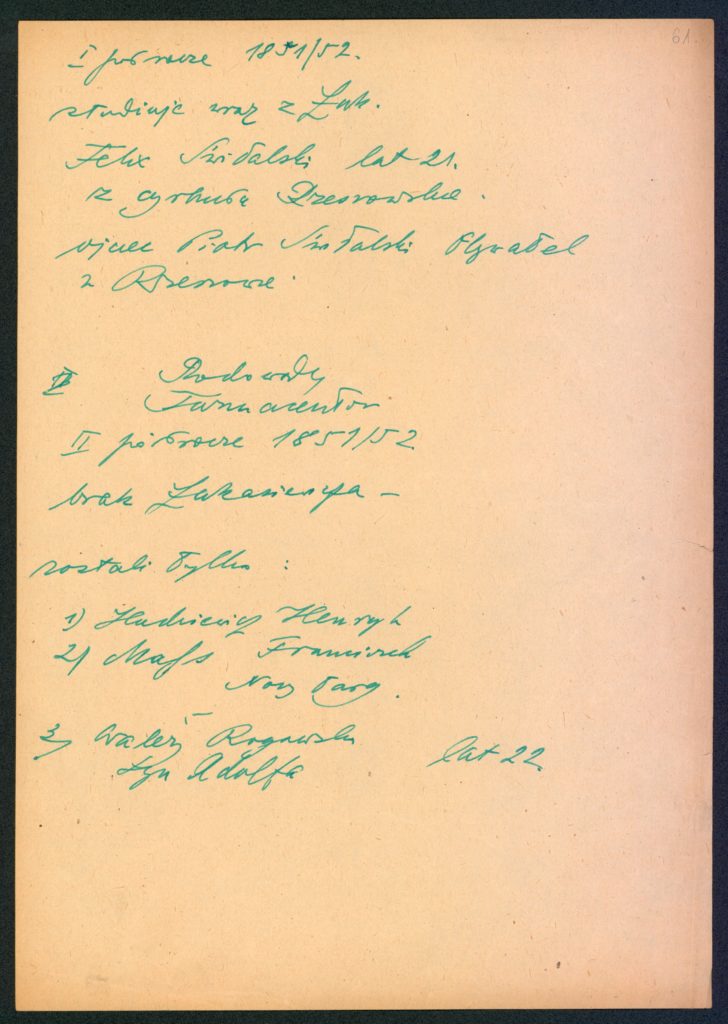 61.
I półrocze 1851/52.
studiuje wraz z Łuk.
Felix Świdalski lat 21.
z cyrkułu Rzeszowskie.
ojciec Piotr Świdalski Obywatel
z Rzeszowie
II Rodowody
Farmaceutów
II półrocze 1851/52
brak Łukasiewicza –
zostali tylko :
1) Henryk
2) Franciszek
Nowy Targ.
3) Walery Rogawski
syn Adolfa lat 22.